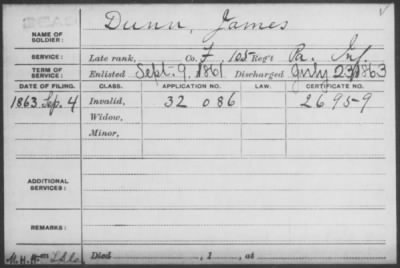 DEAD
Dunn, James
NAME OF SOLDIER:
SERVICE: Late rank, Co. F 105 Reg't Pa. Inf.
TERM OF SERVICE: Enlisted Sept. 9, 1861 Discharged July 23, 1863
DATE OF FILING. CLASS. APPLICATION NO. LAW. CERTIFICATE NO.
1863 Sep. 4 Invalid, 32 086 26959
Widow,
Minor,
ADDITIONAL SERVICES:
REMARKS:
Died , 1 , at